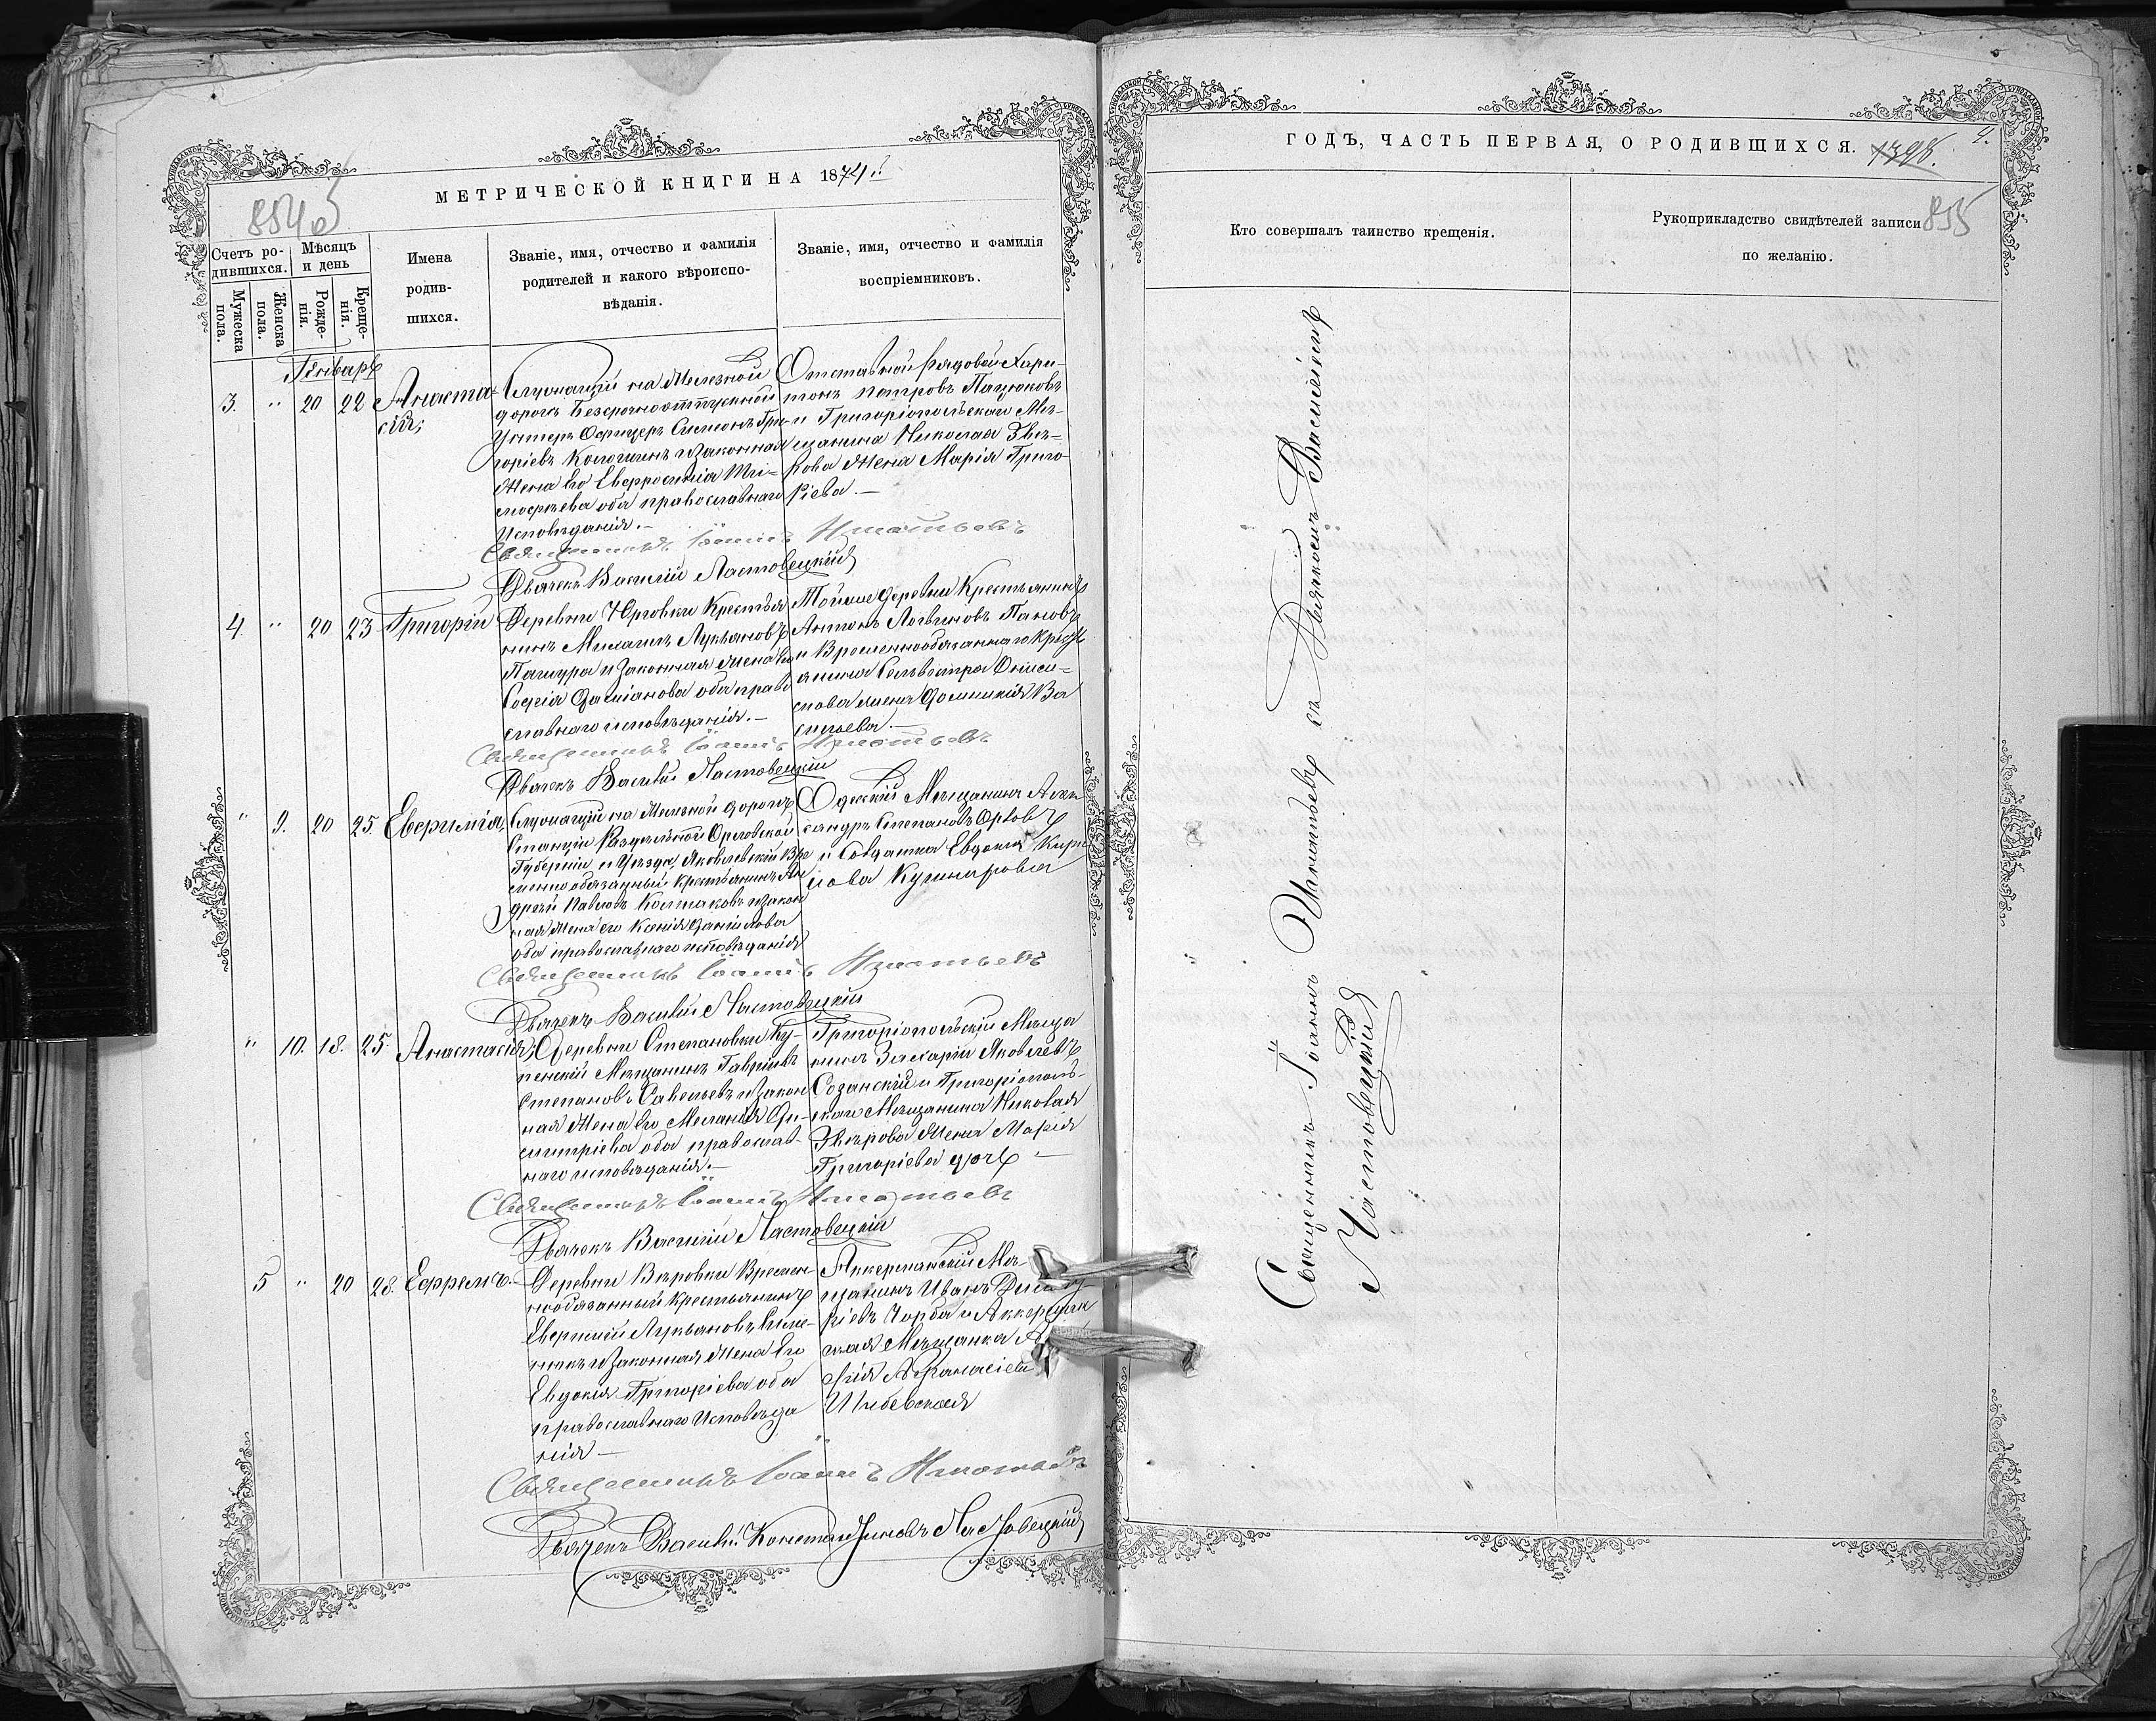 МЕТРИЧЕСКОЙ КНИГИ НА 1874 г.
Счетъ ро-
дившихся.
Мужеска
пола.
Женска
пола.
Мѣсяцъ
и день
Рожде-
нія.
Креще-
нія.
Имена
родив-
шихся.
Званіе, имя, отчество и фамилія
родителей и какого вѣроиспо-
вѣданія.
Званіе, имя, отчество и фамилія
воспріемниковъ.
Январь
3. " 20 22 Анаста-
сія;
Служащій на Желѣзной
дорогѣ Безсрочноотпускной
Унтеръ Офицеръ Симеонъ Гри-
горіевъ и Законная
Жена Его Евфросинія Ти-
мофѣева оба православнаго
Исповѣданія.—
Отставной Рядовой Хари-
тонъ Петровъ
и Григоріопольскаго Мѣ-
щанина Николая Звѣ-
рова Жена Марія Григо-
ріева.—
Священникъ Іоаннъ Игнатьевъ
Дьячекъ Василій Ластовецкій
4. " 20 23 Григорій
Деревни Юрловки Крестья
нинъ Михаилъ Лукьяновъ
и Законная Жена Его
Софія Даміанова оба право
славнаго исповѣданія.—
Тойже деревни Крестьянинъ
Антонъ Логвиновъ Пановъ
и Временнообязаннаго Крест
янина Сельвестра Ониси-
мова жена Домникія Ва
сильева.—
Священникъ Іоаннъ Игнатьевъ
Дьячекъ Василій Ластовецкій
" 9. 20 25. Евфимія,
Служащій на Желѣзной дорогѣ
Станціи Раздѣльной Орловской
Губерніи и Уѣзда, Яковлевскій Вре
менно обязанный Крестьянинъ Ан
дрей Павловъ и закон
ная Жена его Ксенія Даніилова
оба православнаго исповѣданія
Одесскій Мѣщанинъ Алек
сандръ Степановъ Орловъ
и Солдатка Евдокія Кири
лова
Священникъ Іоаннъ Игнатьевъ
Дьячекъ Василій Ластовецкій
" 10. 18. 25. Анастасія;
Деревни Степановки
Мѣщанинъ Гавріилъ
Степановъ Савельевъ и Закон
ная Жена Его Меланія Ди-
митріева оба православ-
наго исповѣданія.—
Григоріопольскій Мѣща
нинъ Захарій Яковлевъ
Созанскій и Григоріополь-
скаго Мѣщанина Николая
Звѣрова Жена Марія
Григоріева дочь —
Священникъ Іоаннъ Игнатьевъ
Дьячекъ Василій Ластовецкій
5 " 20 28. Ефремъ.
Деревни Вѣровки Времен-
нообязанный Крестьянинъ
Евфимій Лукьяновъ
и Законная Жена Его
Евдокія Григоріева оба
православнаго Исповѣда
нія—
Аккерманскій Мѣ-
щанинъ Иванъ
Чорба и Аккерман
ская Мѣщанка
Афанасіева
Священникъ Іоаннъ Игнатьевъ
Дьячекъ Василій Константиновъ Ластовецкій
ГОДЪ, ЧАСТЬ ПЕРВАЯ, О РОДИВШИХСЯ.
4.
855
Кто совершалъ таинство крещенія.
Рукоприкладство свидѣтелей записи
по желанію.
Священникъ Іоаннъ Игнатьевъ съ Дьячкомъ Василіемъ
Ластовецкій